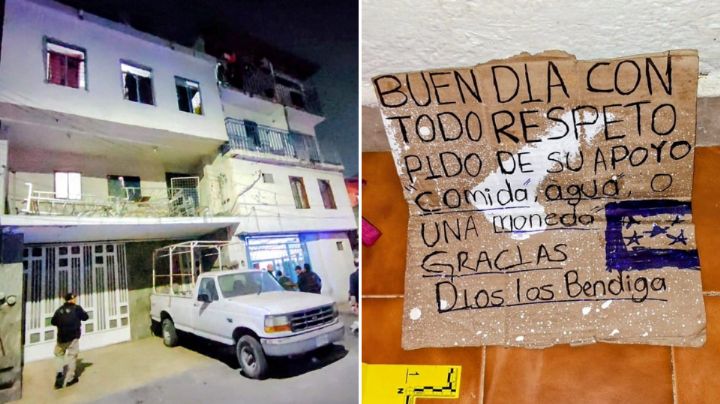 BUEN DIA CON
TODO RESPETO
PIDO DE SU APOYO
"comida, agua, O
UNA moneda"
GRACIAS
Dios los Bendiga